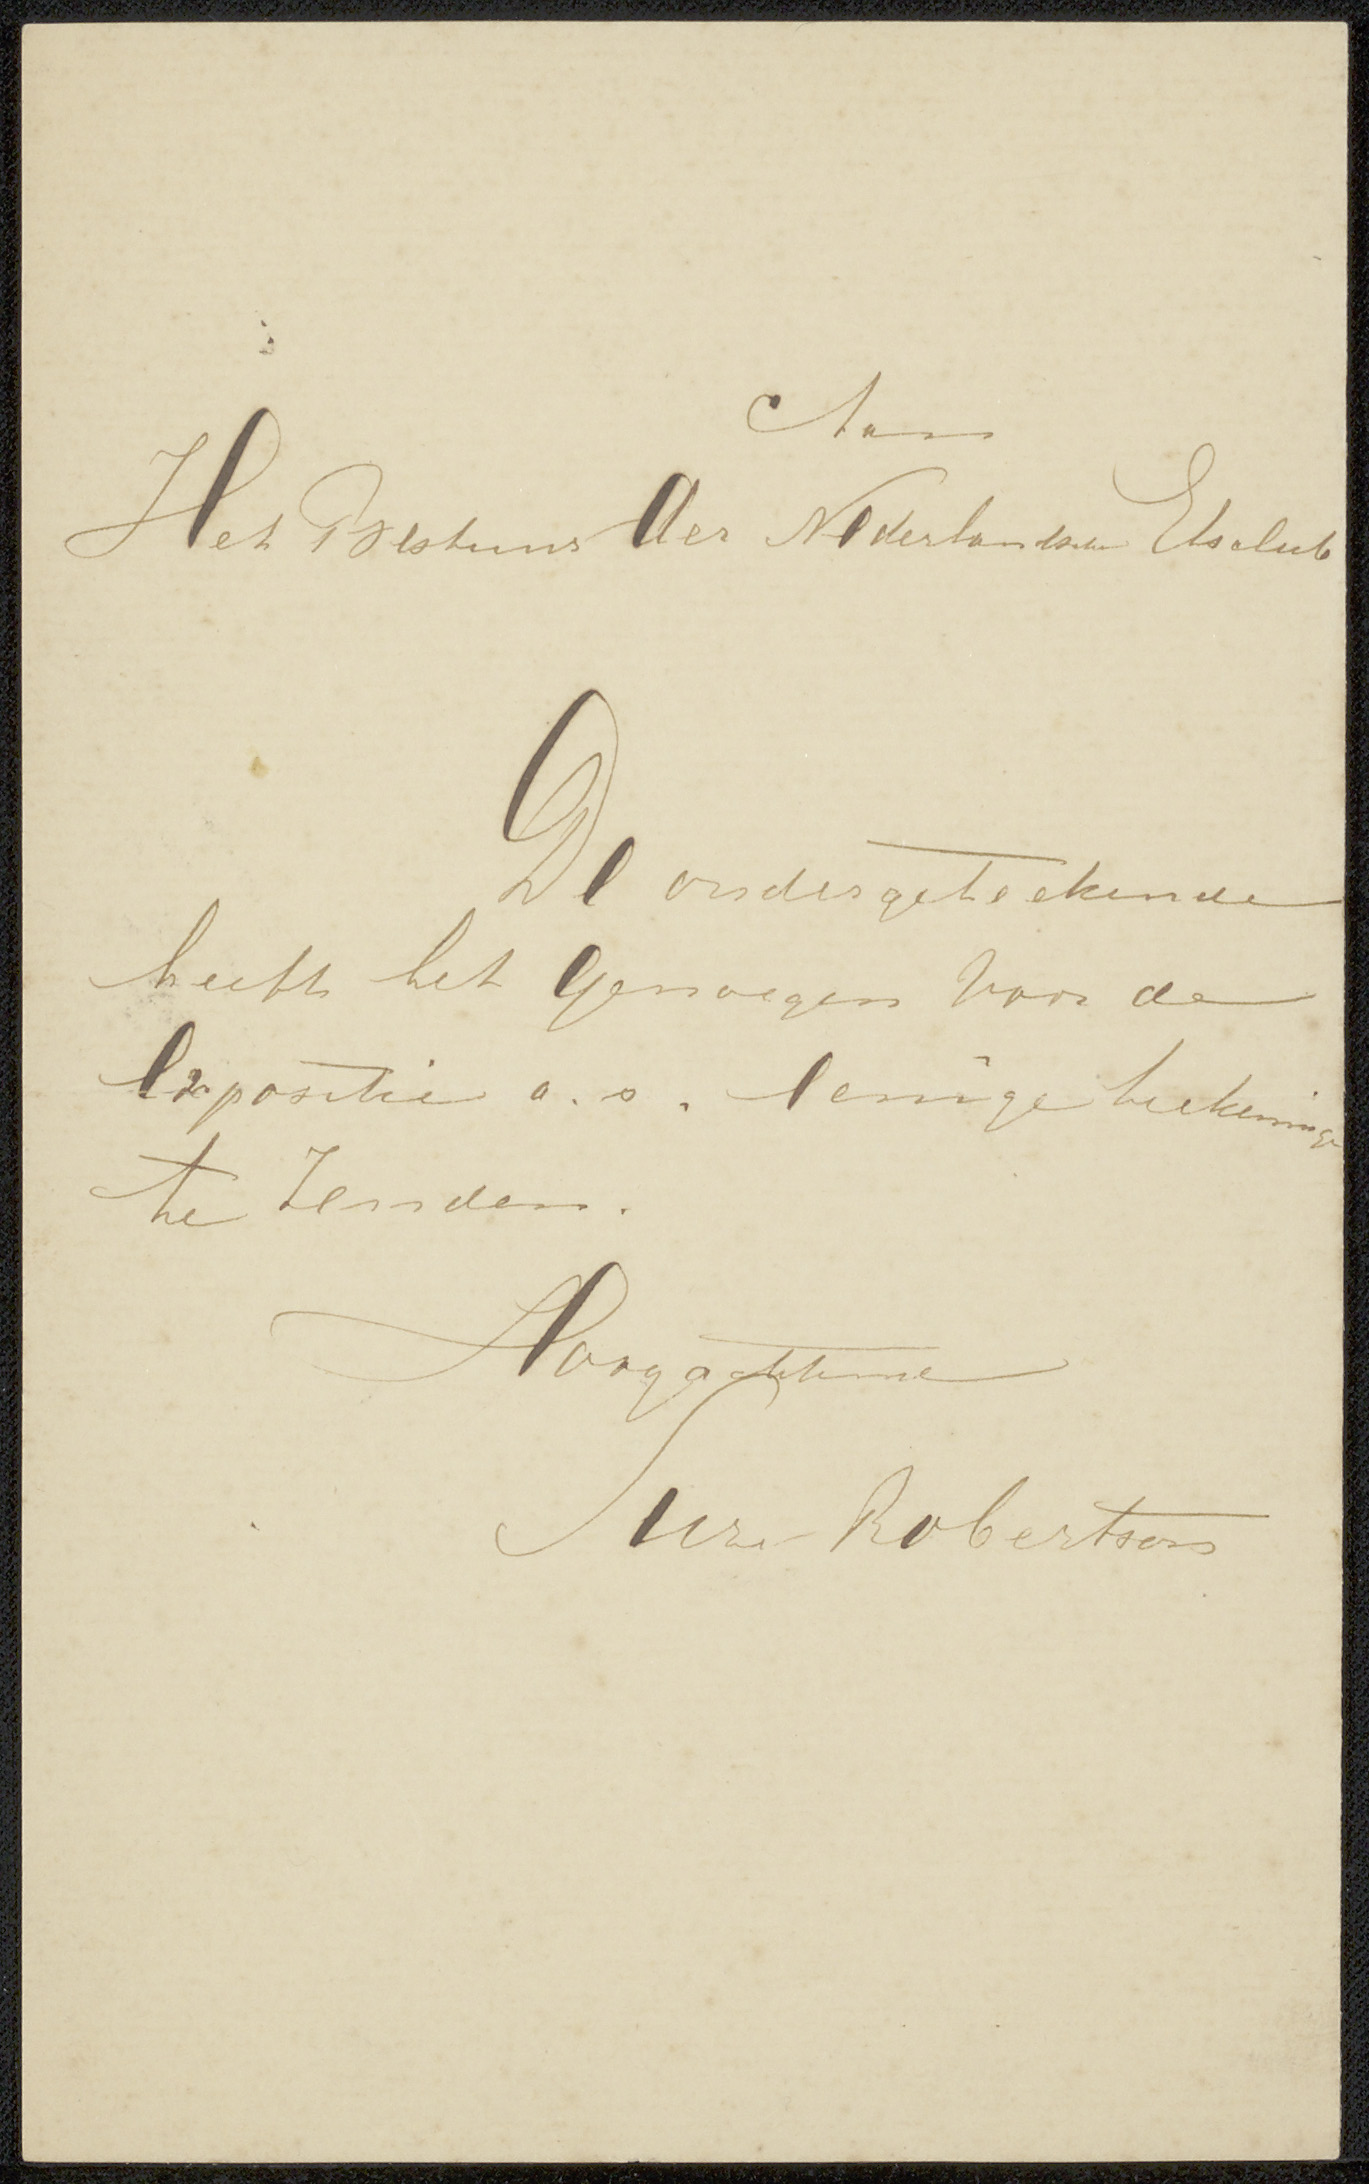 Aan
Het Bestuur der Nederlandsche Etsclub
De ondergeteekende
heeft het genoegen voor de
expositie a.s. eenige teekeninge
te zenden.
Hoogachtend
Suze Robertson